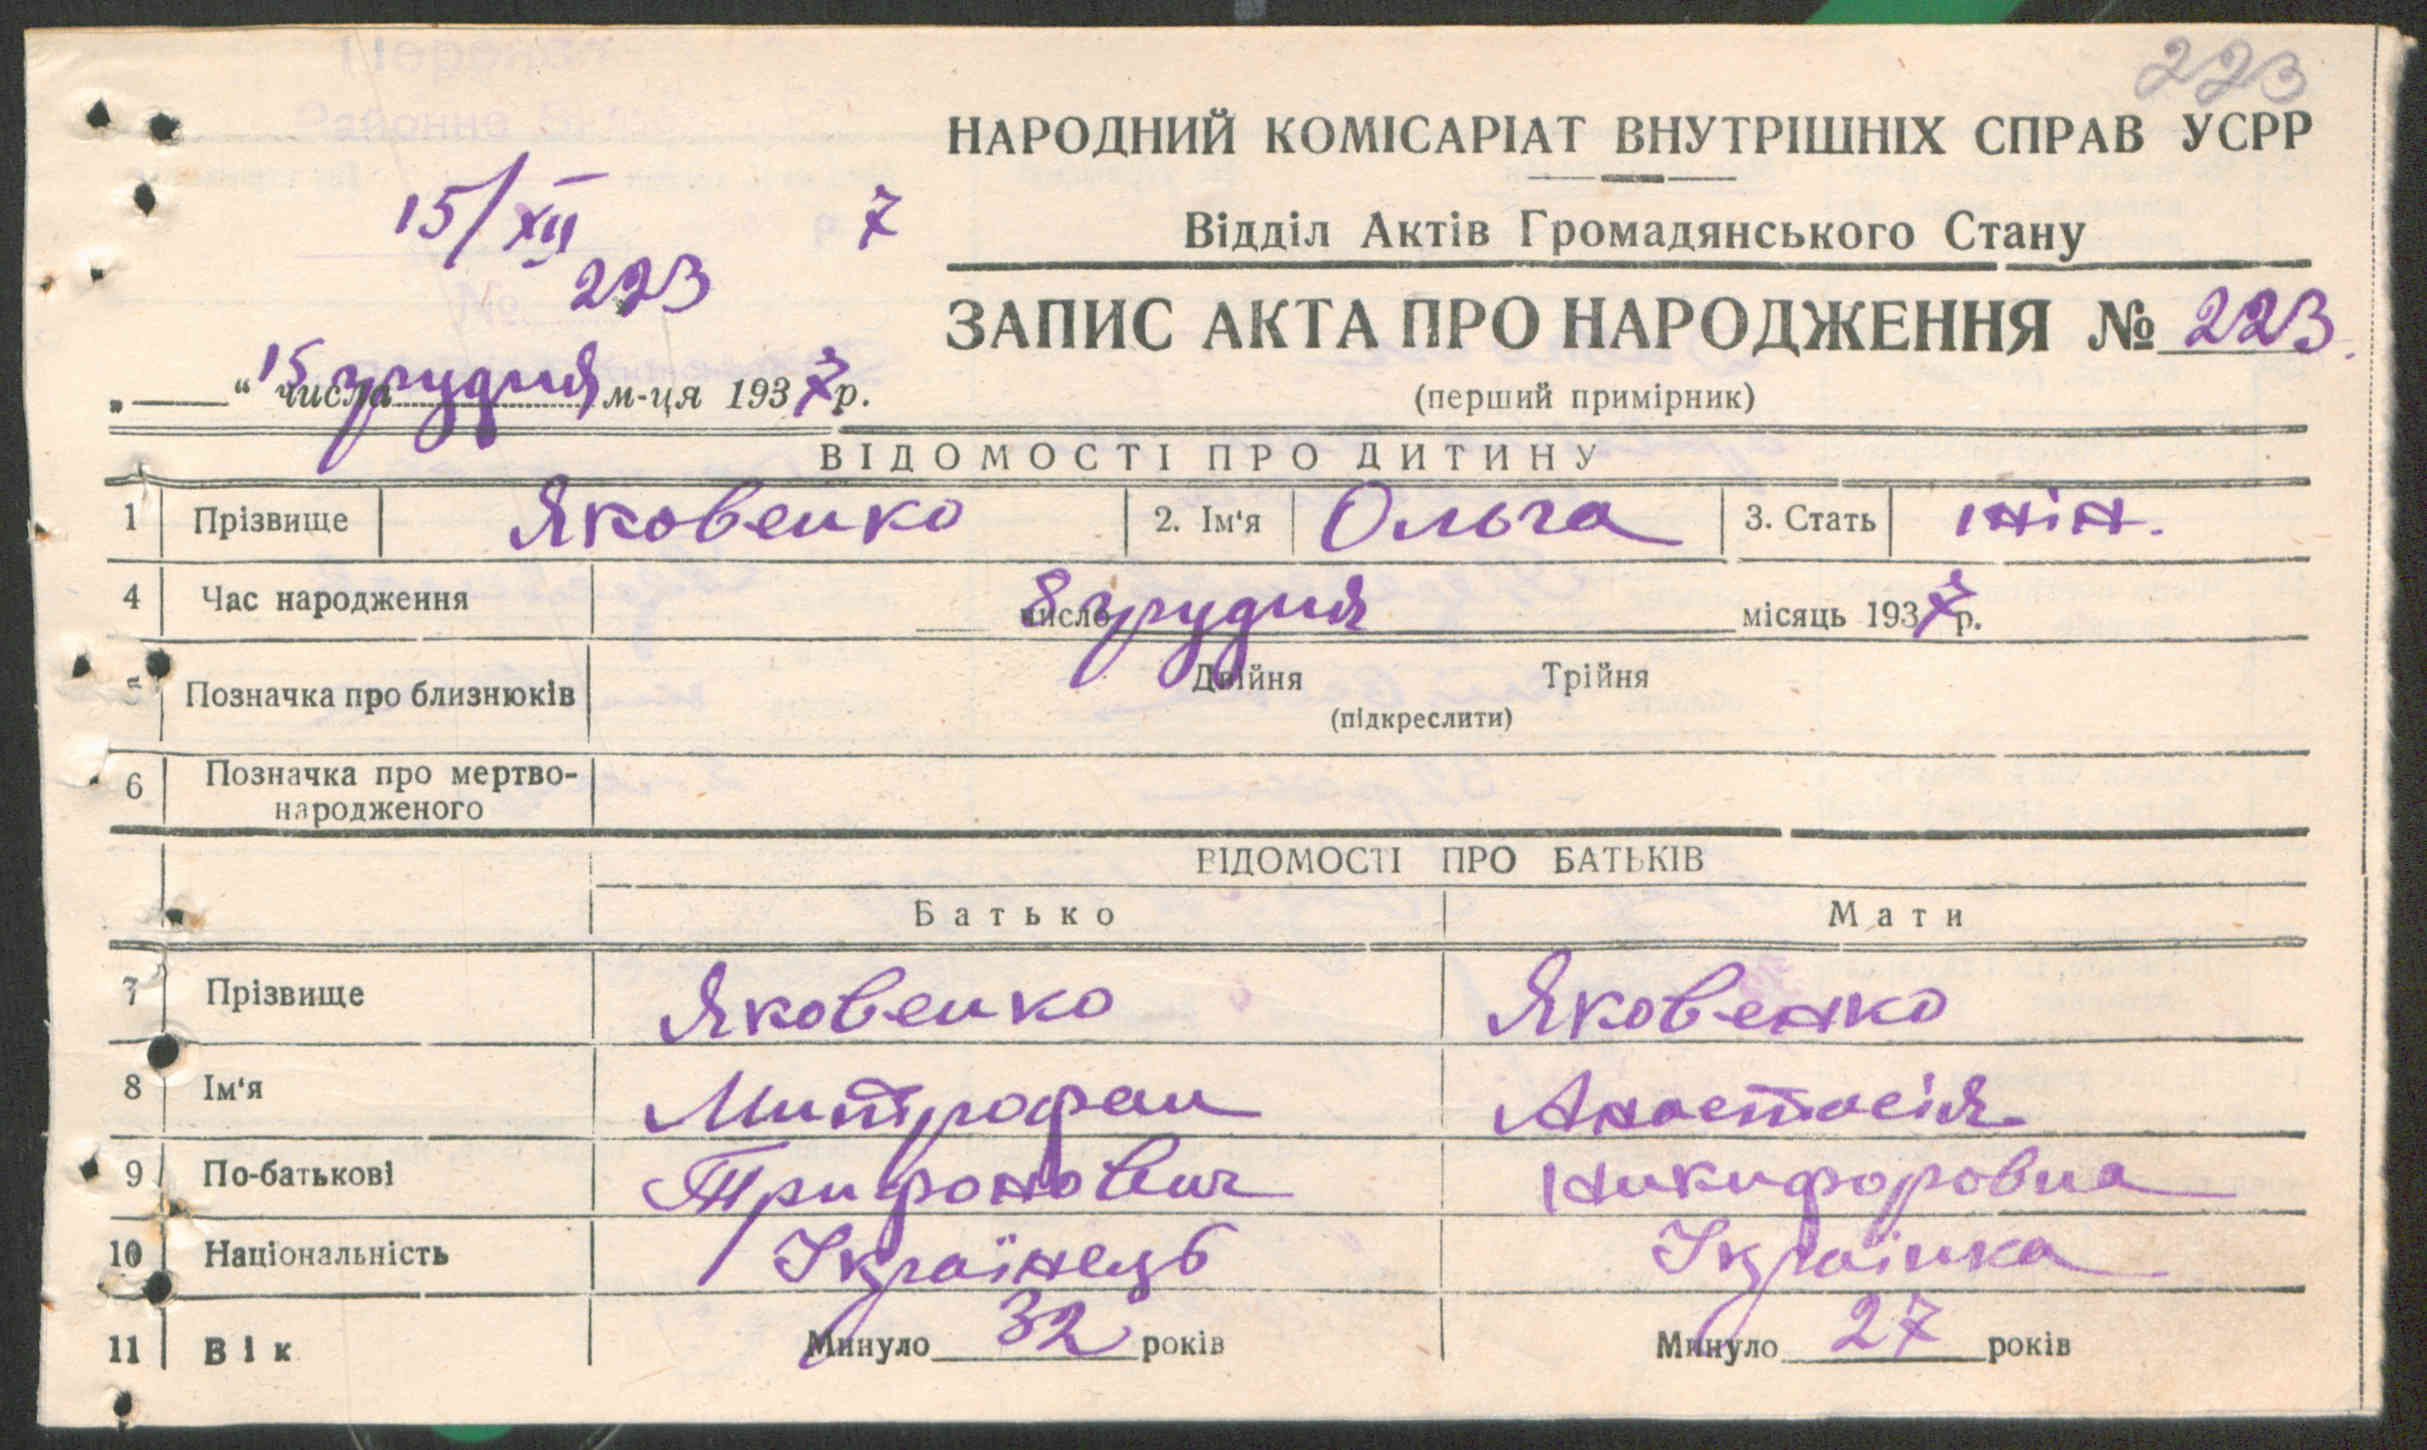 223
НАРОДНИЙ КОМІСАРІАТ ВНУТРІШНІХ СПРАВ УСРР
15/XII 7
Відділ Актів Громадянського Стану
223
ЗАПИС АКТА ПРО НАРОДЖЕННЯ № 223.
„ “ 15 числа грудня м-ця 1937 р.
(перший примірник)
ВІДОМОСТІ ПРО ДИТИНУ
1 Прізвище Яковенко 2. Ім'я Ольга 3. Стать жін.
4 Час народження 8 число грудня місяць 1937 р.
5 Позначка про близнюків Двійня Трійня
(підкреслити)
6 Позначка про мертво-
народженого
ВІДОМОСТІ ПРО БАТЬКІВ
Батько Мати
7 Прізвище Яковенко Яковенко
8 Ім'я Митрофан Анастасія
9 По-батькові Трифонович Никифоровна
10 Національність Українець Українка
11 Вік Минуло 32 років Минуло 27 років